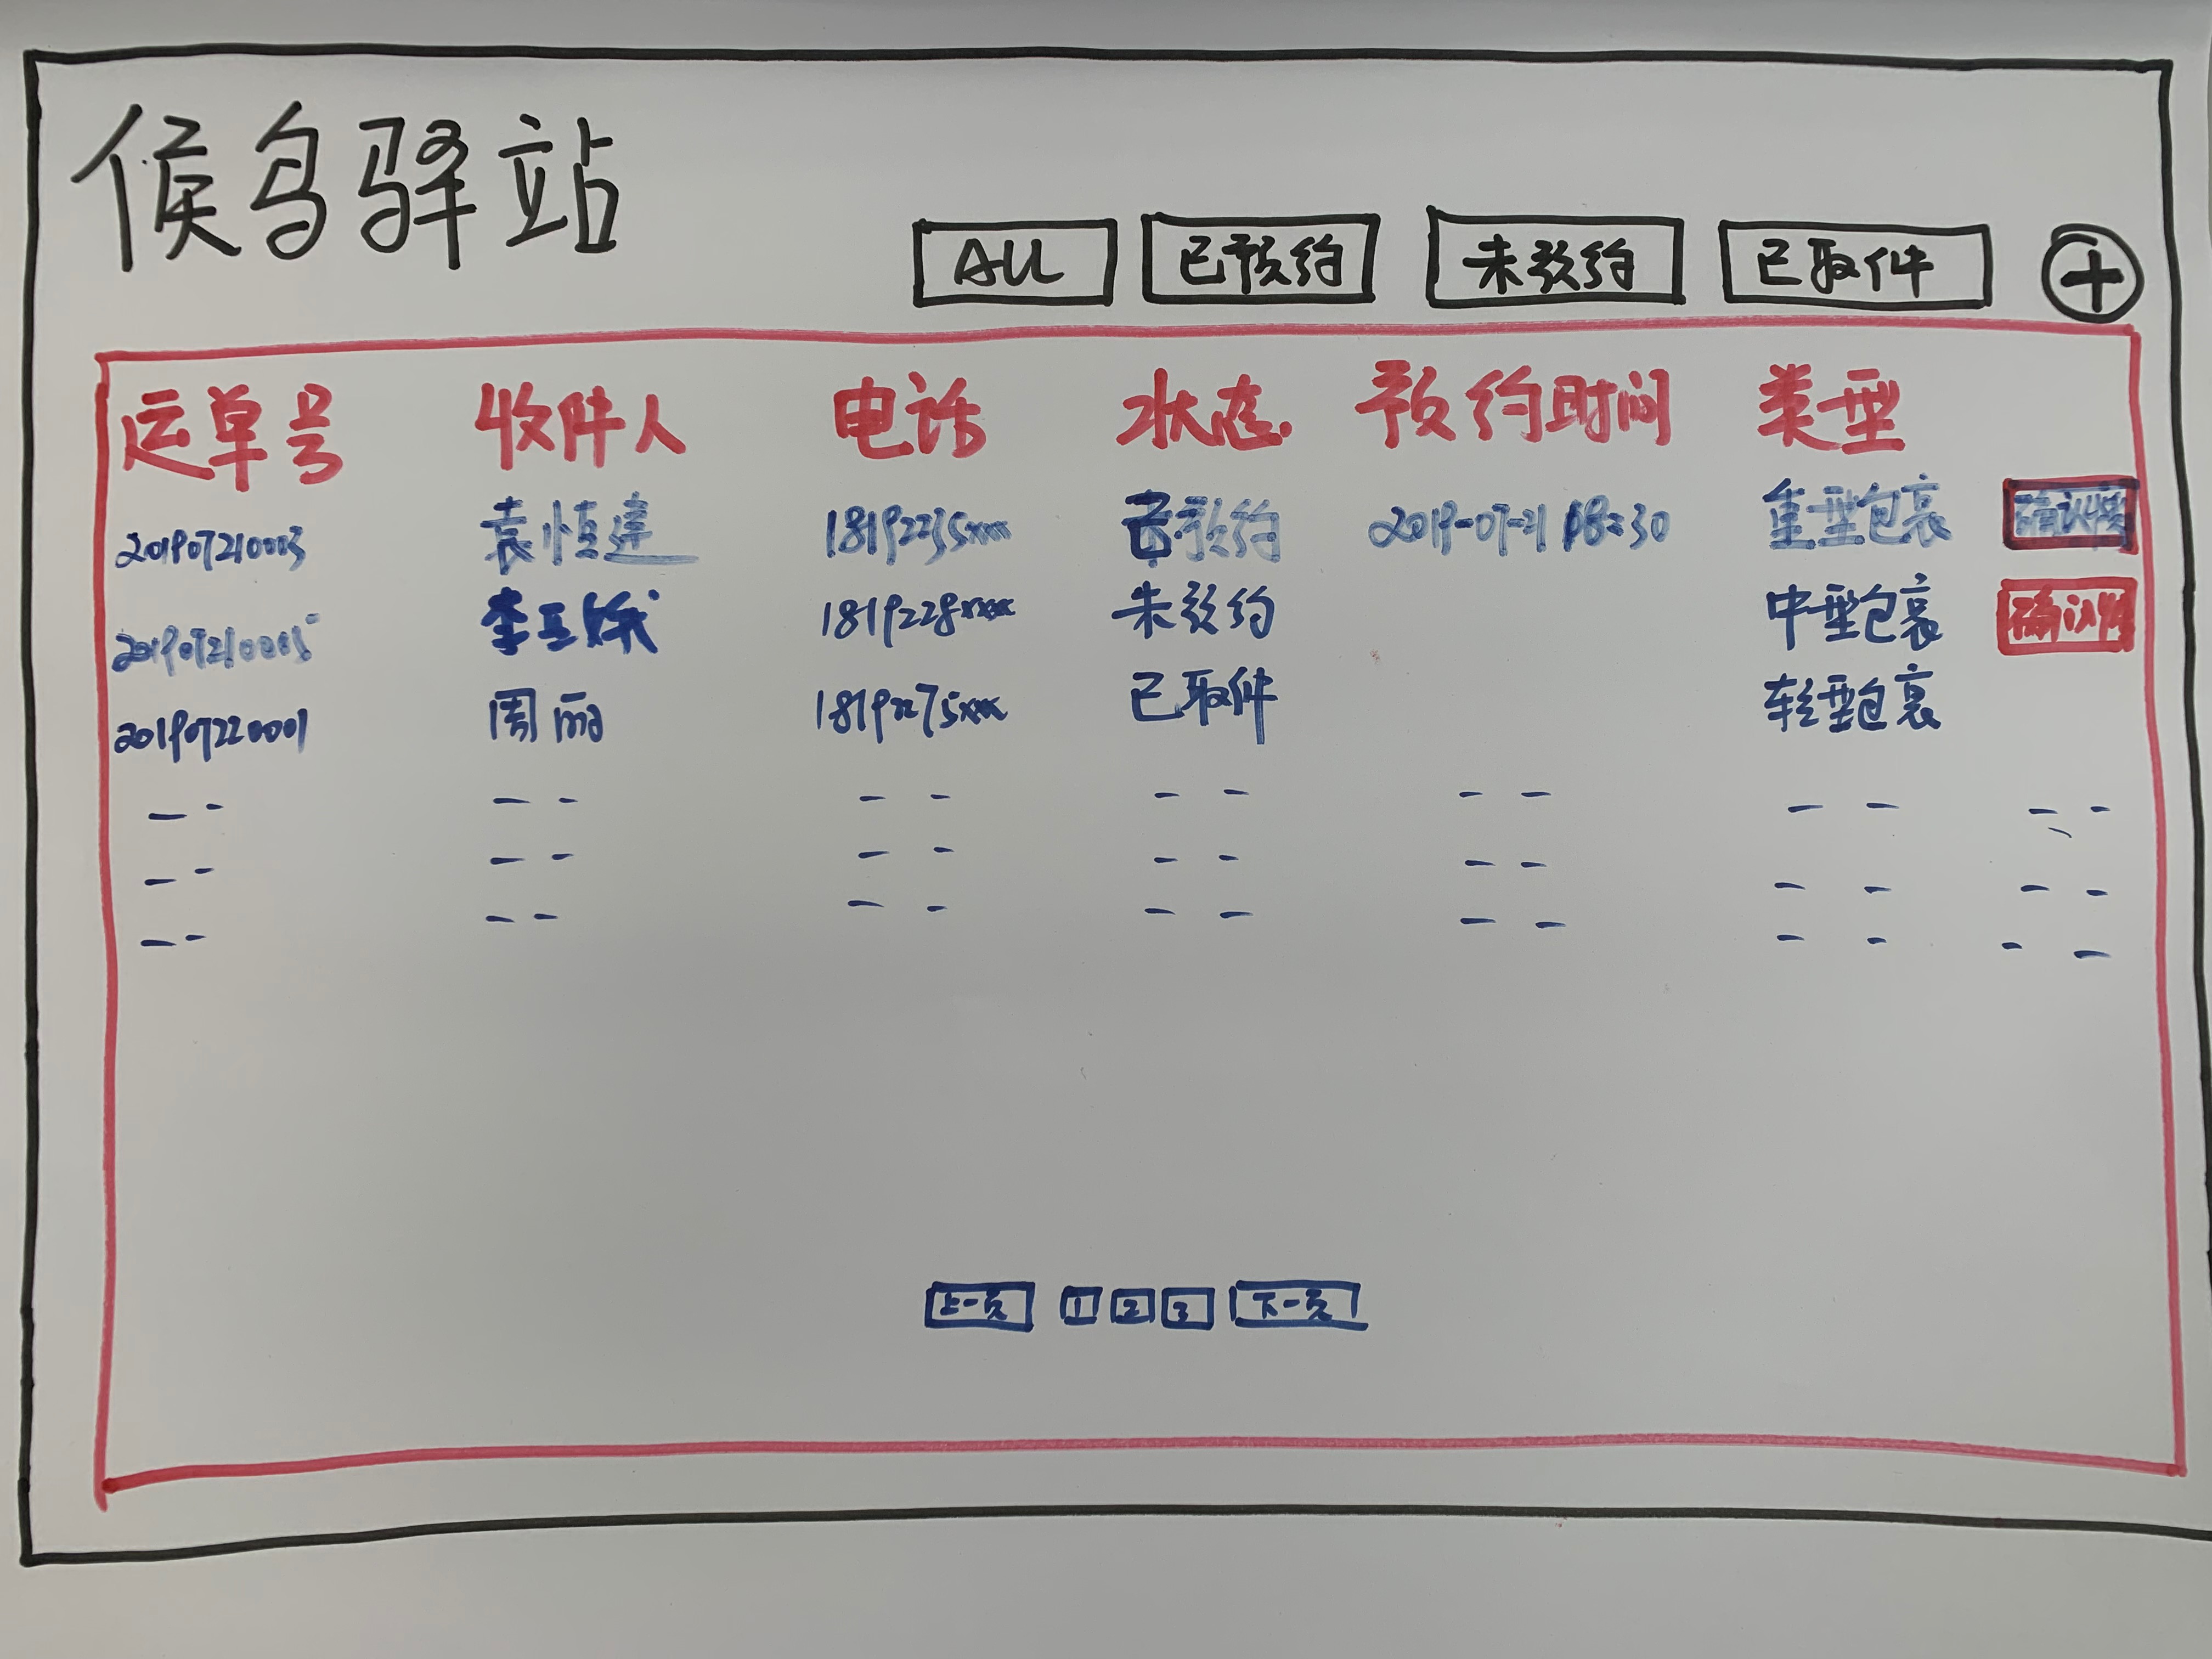 候鸟驿站
ALL 已预约 未预约 已取件 +
运单号 收件人 电话 状态 预约时间 类型
201907210003 袁恒建 1819235xxxx 已预约 2019-07-21 18:30 重型包裹
201907210005 李亚娥 1819228xxxx 未预约 中型包裹
201907220001 周丽 1819275xxxx 已取件 轻型包裹
-- -- -- -- -- -- --
-- -- -- -- -- -- --
-- -- -- -- -- -- --
上一页 1 2 3 下一页